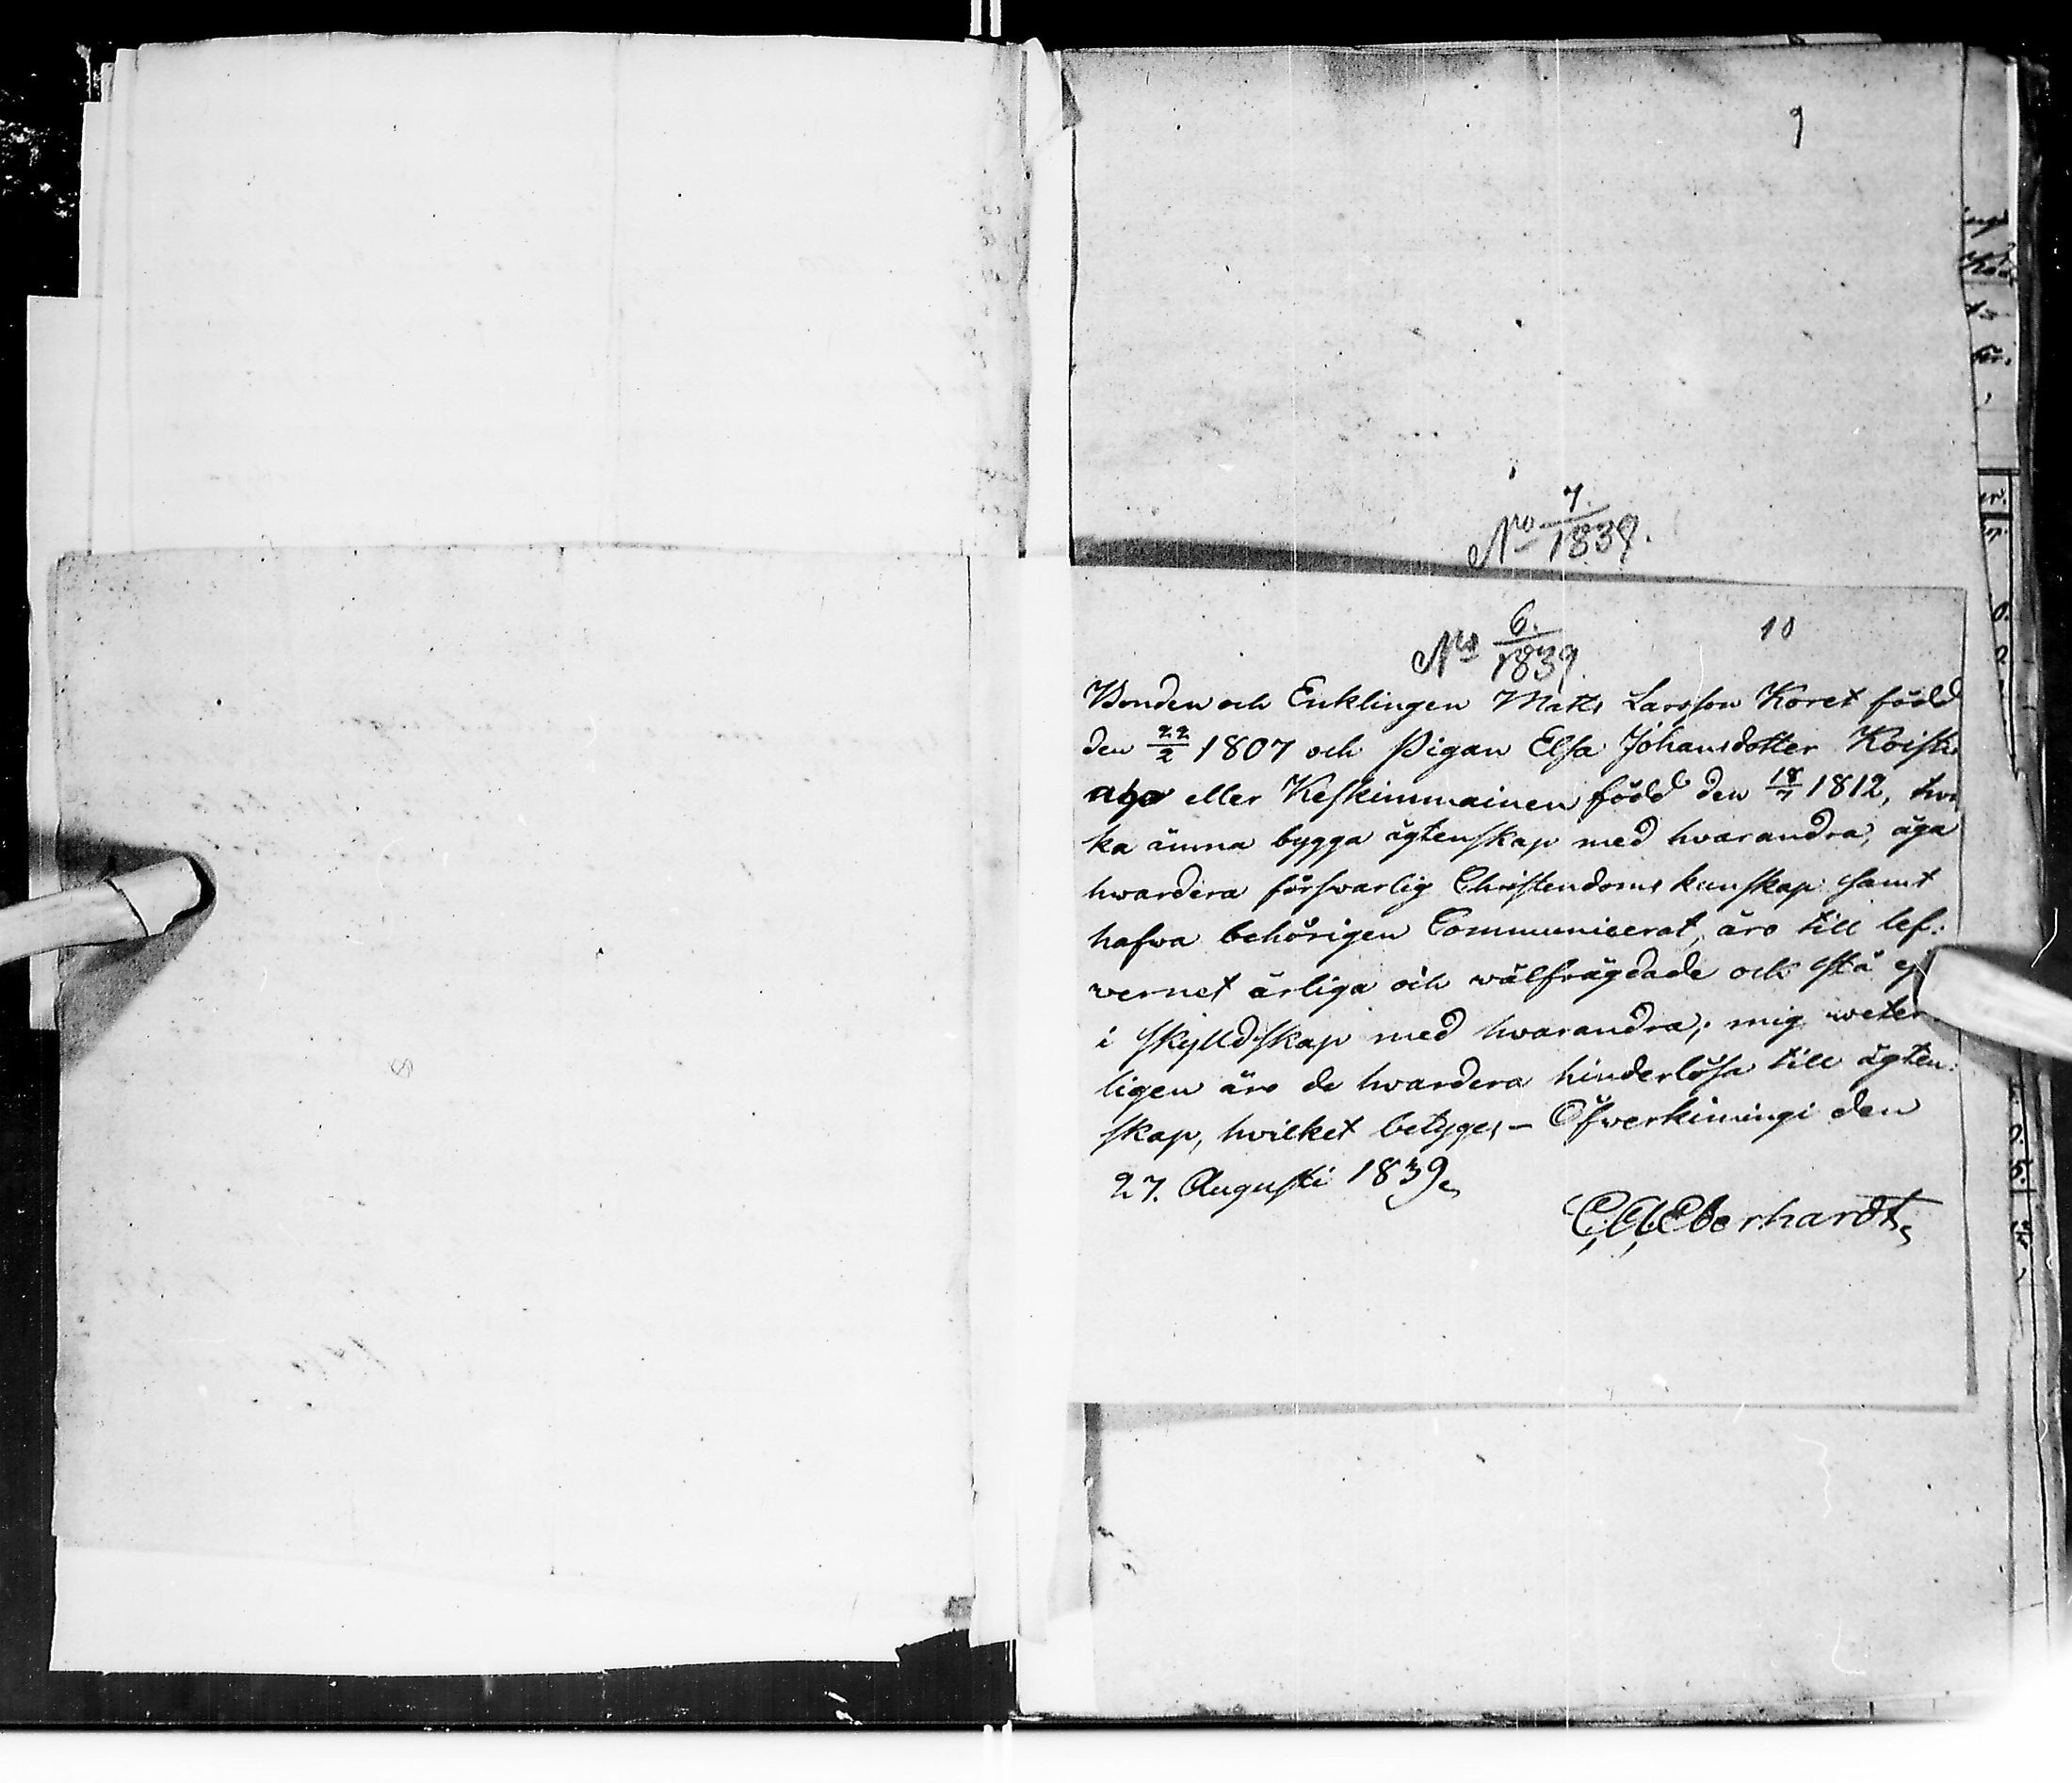 9
No 7/1839.
No 6./1839.
10
Bonden och Enklingen Matts Larsson Koret född
den 22/2 1807 och Pigan Elsa Johansdotter
eller Keskimmainen född den 18/7 1812,
ka ämna bygga ägtenskap med hvarandra, äga
hwardera förswarlig Christendoms kunskap samt
hafwa behörigen Communicerat, äro till lef:
wernet ärliga och wälfrägdade och stå
i skylldskap med hvarandra; mig weter
ligen äro de hwardera hinderlösa till ägten:
skap, hvilket betyges – Öfwerkimingi den
27. Augusti 1839.
C. A. Eberhardt.